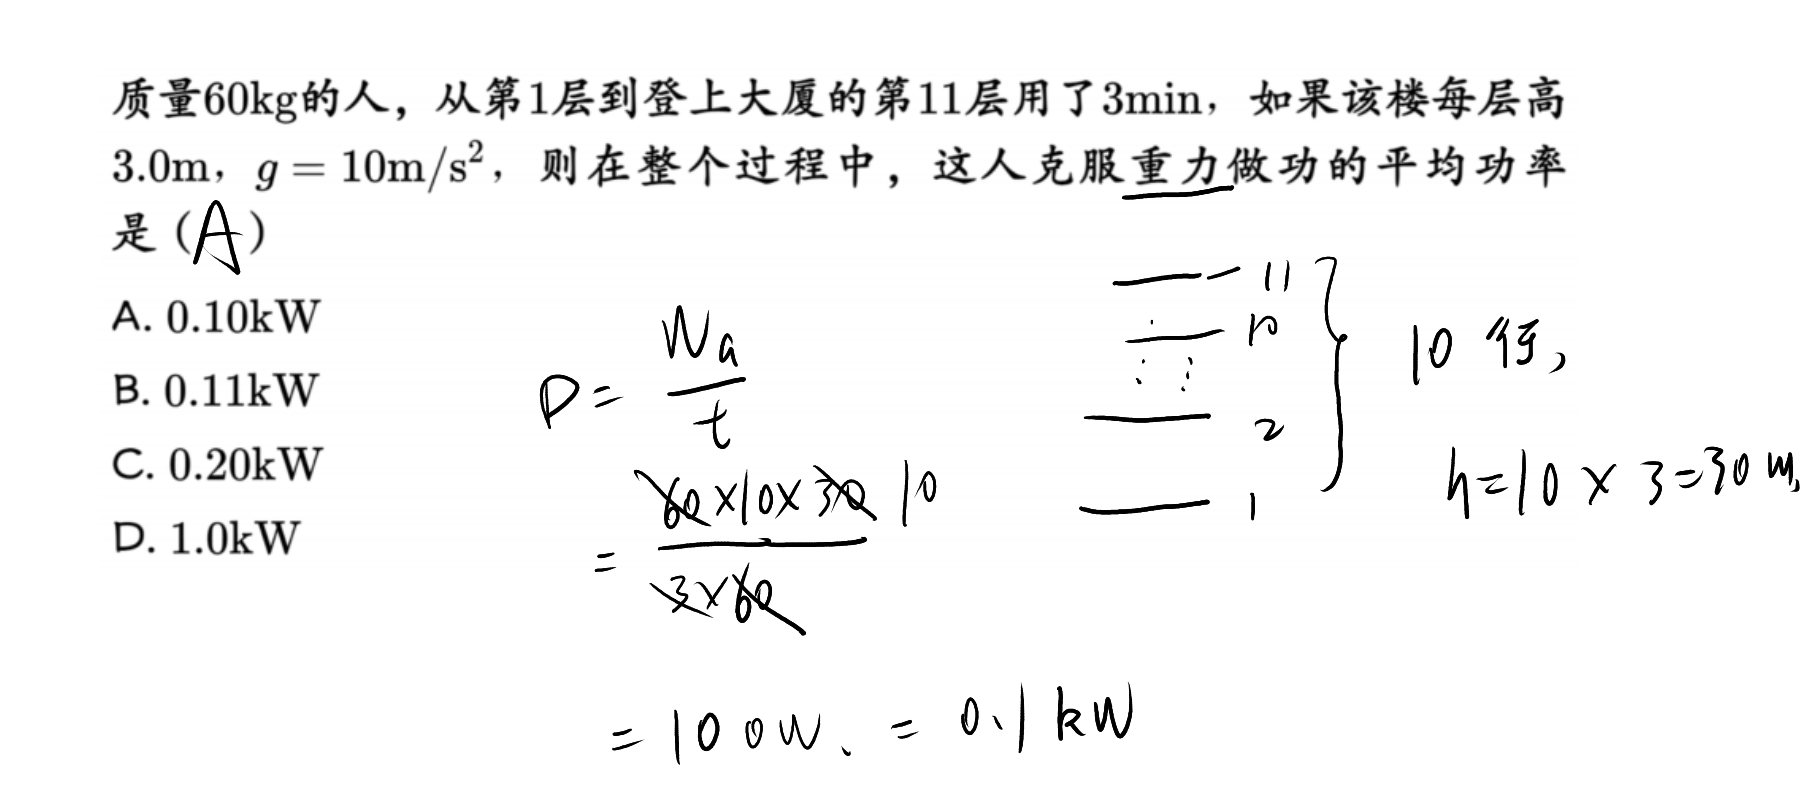 质量60kg的人，从第1层到登上大厦的第11层用了3min，如果该楼每层高
3.0m，g = 10m/s²，则在整个过程中，这人克服重力做功的平均功率
是（A）
A. 0.10kW
B. 0.11kW
C. 0.20kW
D. 1.0kW
P = W_G / t
= 60×10×30 10 / 3×60
= 100W. = 0.1kW
11
10
2
1
10
h=10×3=30m,